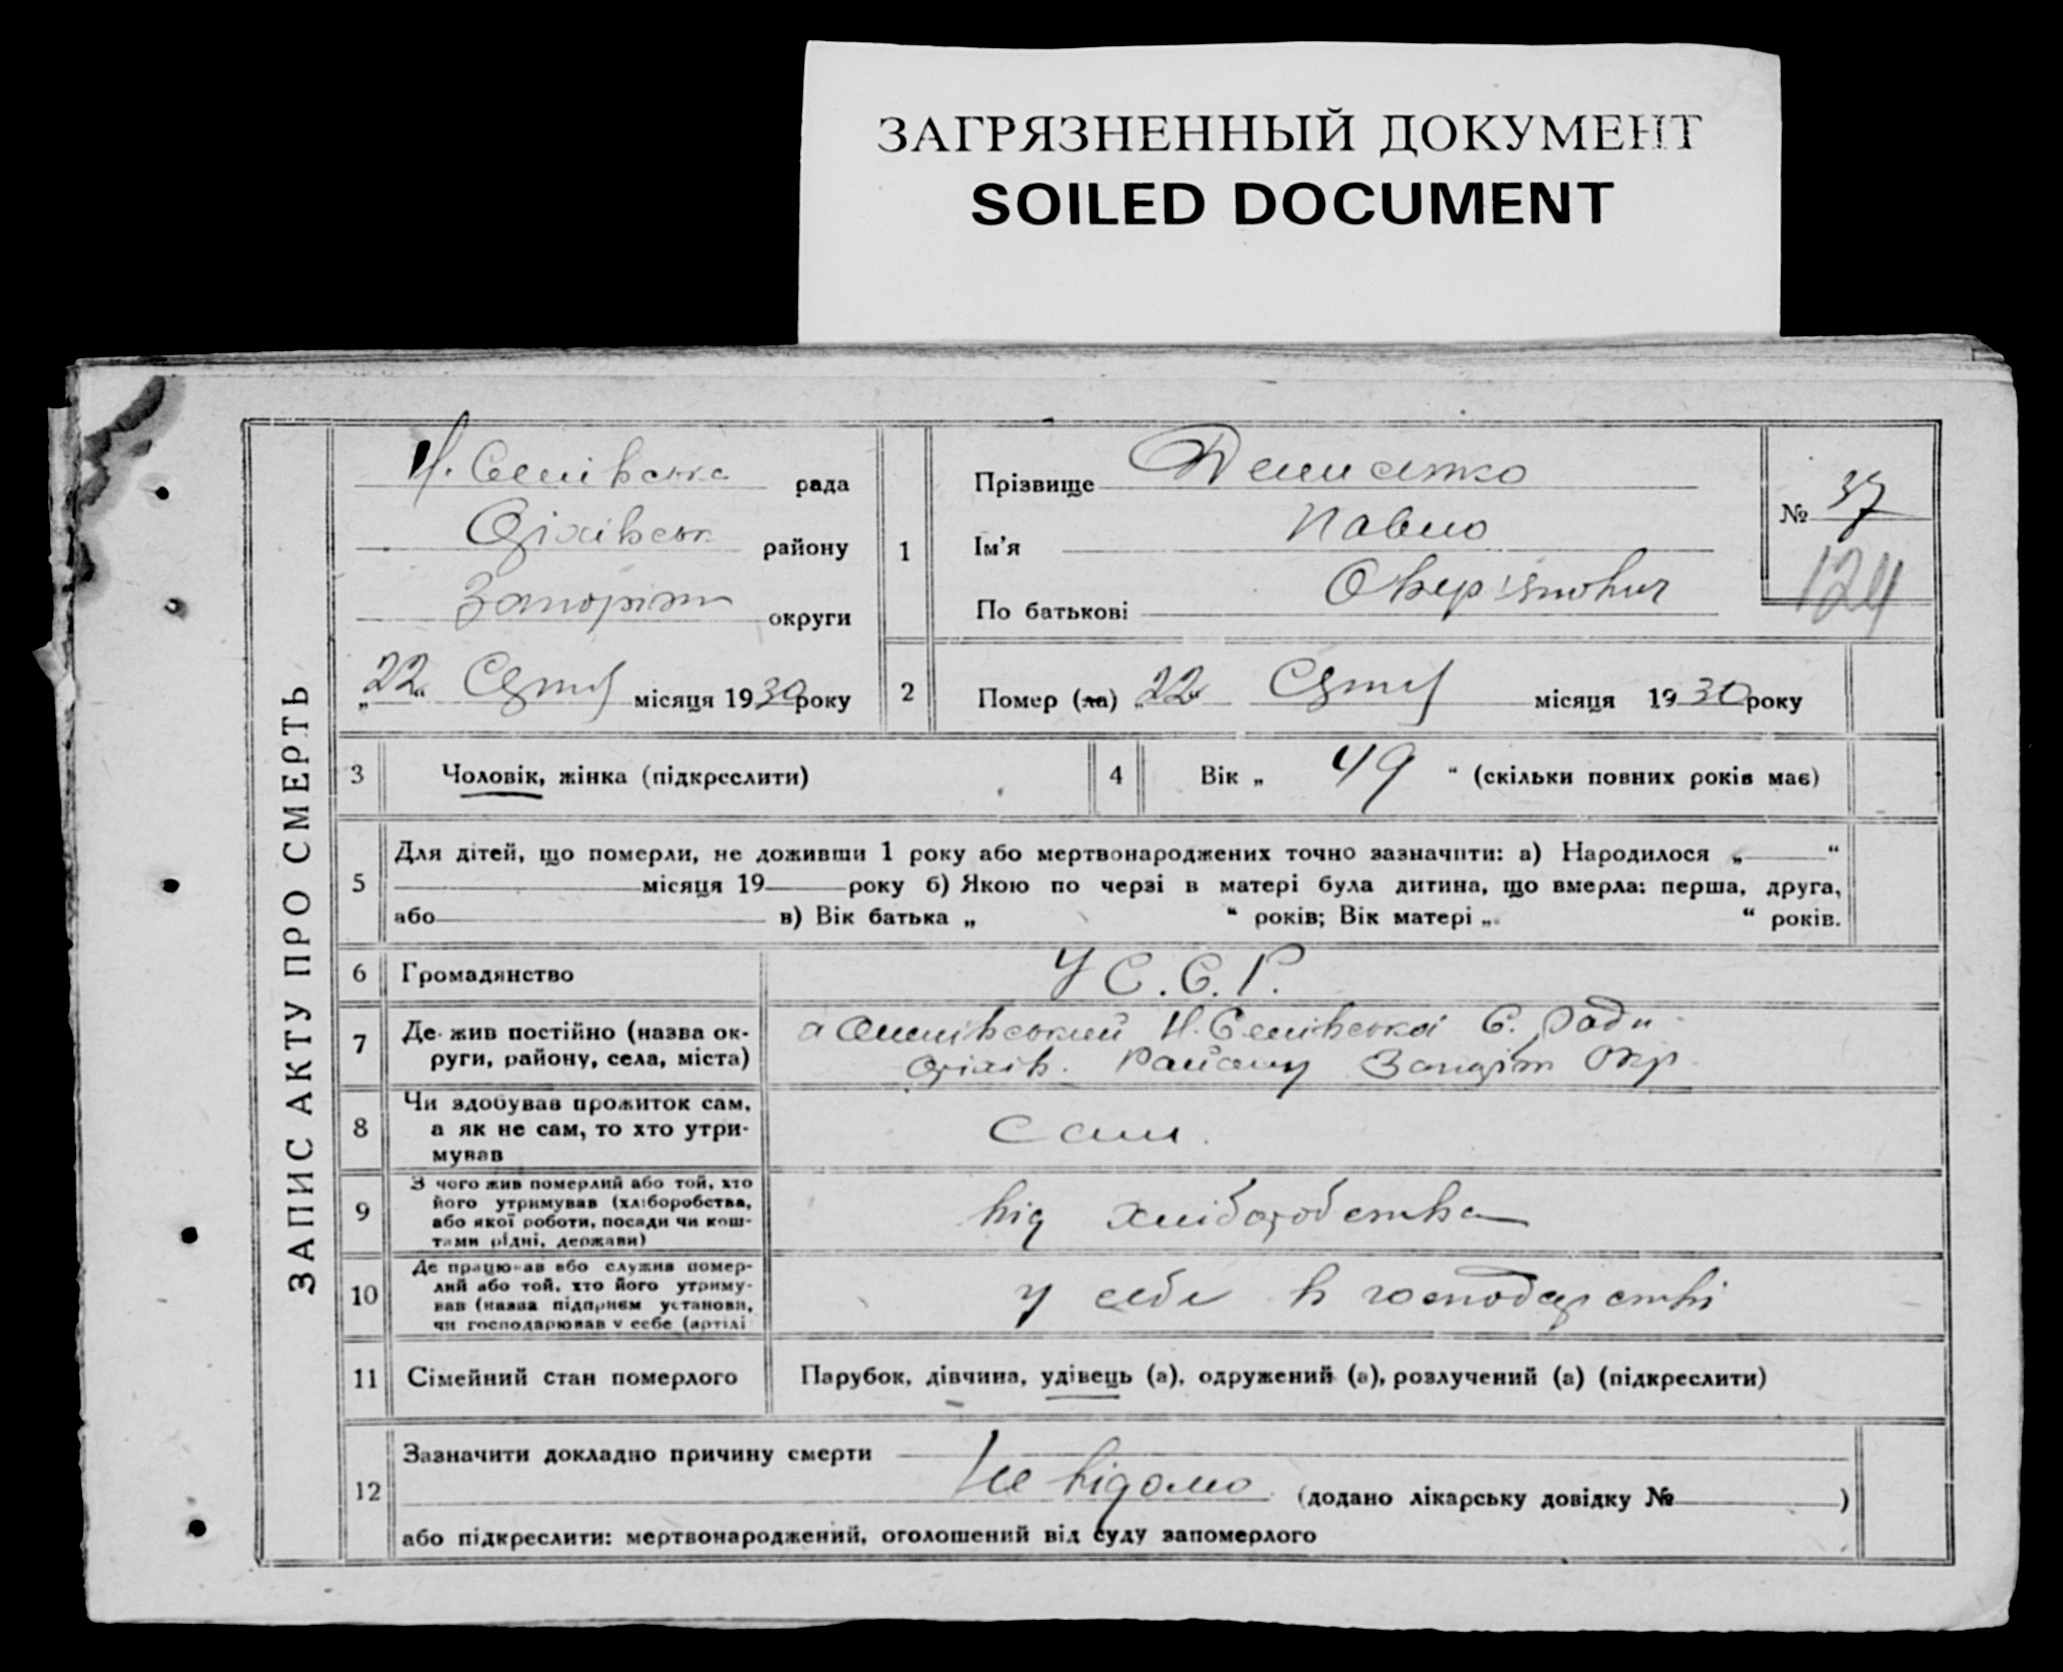 ЗАГРЯЗНЕННЫЙ ДОКУМЕНТ
SOILED DOCUMENT
ЗАПИС АКТУ ПРО СМЕРТЬ
рада
Оріхівськ району
Запоріж округи
„22“ місяця 1930 року
1
Прізвище
Ім'я Павло
По батькові
№ 37
124
2
Помер (ла) „22“ місяця 1930 року
3
Чоловік, жінка (підкреслити)
4
Вік „ 49 “ (скільки повних років має)
5
Для дітей, що померли, не доживши 1 року або мертвонароджених точно зазначити: а) Народилося „ “
місяця 19 року б) Якою по черзі в матері була дитина, що вмерла: перша, друга,
або в) Вік батька „ “ років; Вік матері „ “ років.
6
Громадянство
У С. С. Р.
7
Де жив постійно (назва ок-
руги, району, села, міста)
С. Ради
Оріхів. Району Запоріж Окр
8
Чи здобував прожиток сам,
а як не сам, то хто утри-
мував
Сам.
9
З чого жив померлий або той, хто
його утримував (хліборобства,
або якої роботи, посади чи кош-
тами рідні, держави)
від хліборобства
10
Де працював або служив помер-
лий або той, хто його утриму-
вав (назва підприєм установи,
чи господарював у себе (артілі
У себе в господарстві
11
Сімейний стан померлого
Парубок, дівчина, удівець (а), одружений (а), розлучений (а) (підкреслити)
12
Зазначити докладно причину смерти
Не відомо (додано лікарську довідку № )
або підкреслити: мертвонароджений, оголошений від суду запомерлого